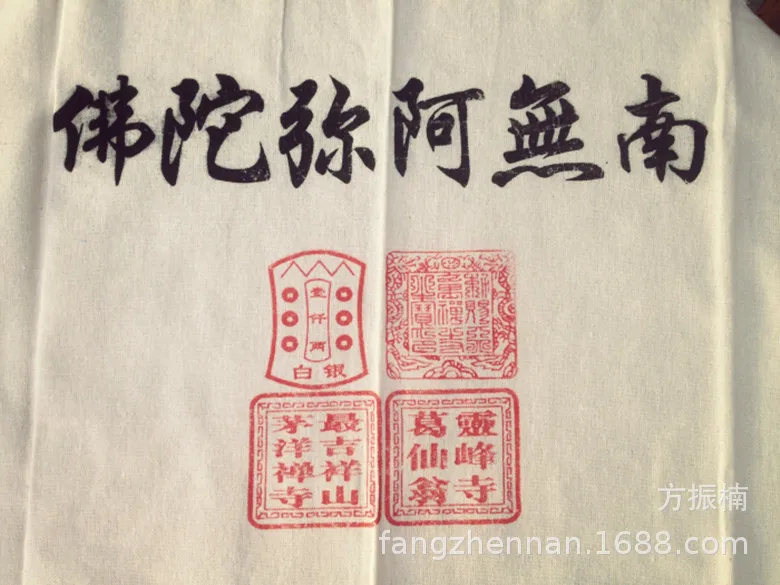 南無阿弥陀佛
壹仟两
白銀
最吉祥山
茅洋禅寺
靈峰寺
葛仙翁
方振楠
fangzhennan.1688.com